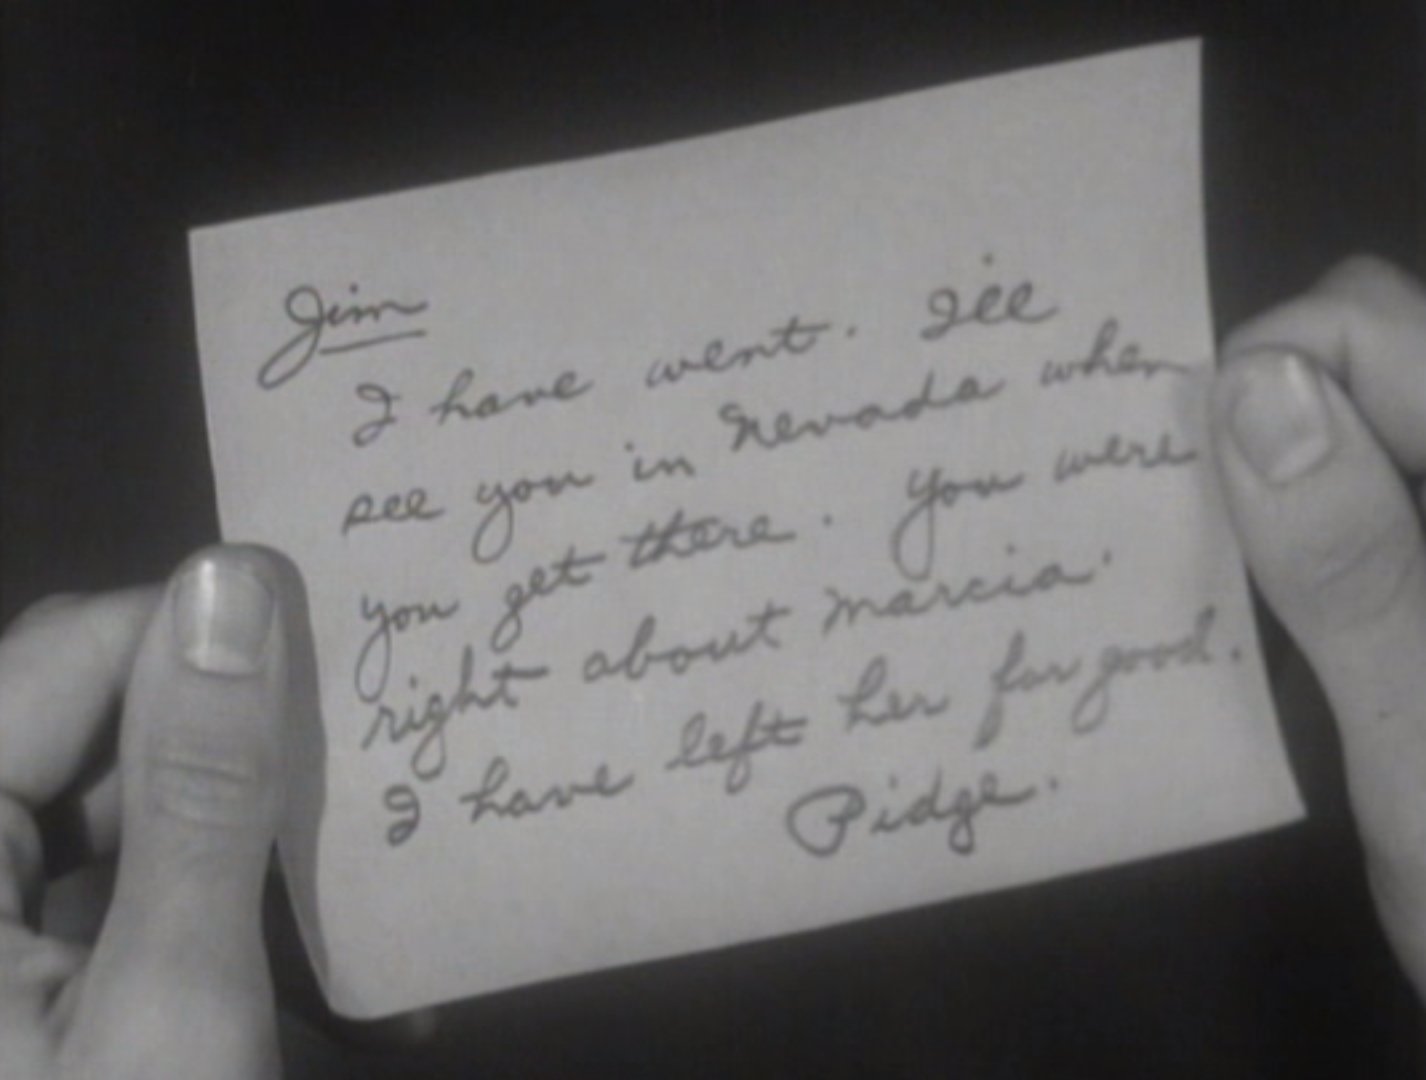 Jim
I have went. I'll
see you in Nevada when
you get there. You were
right about Marcia.
I have left her for good.
Pidge.